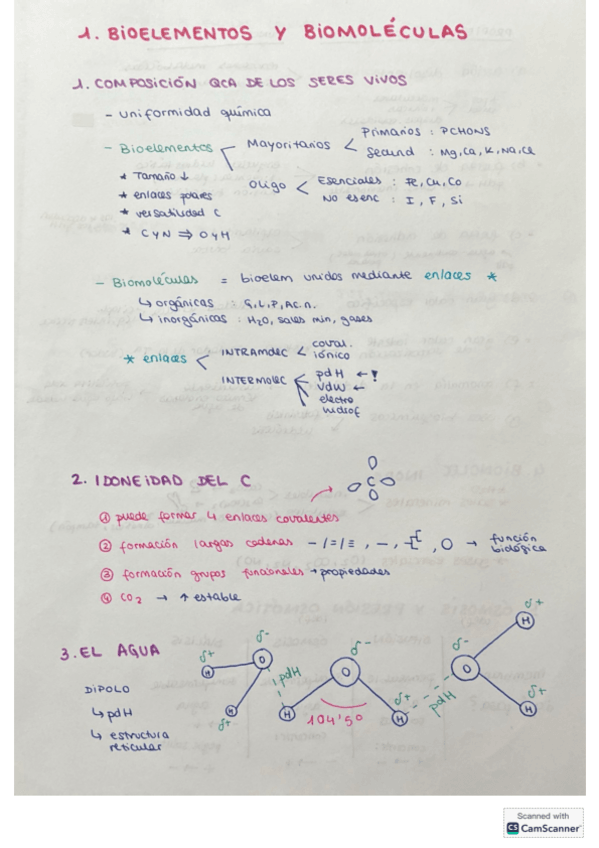 1. BIOELEMENTOS Y BIOMOLÉCULAS
1. COMPOSICIÓN QCA DE LOS SERES VIVOS
- uniformidad química
- Bioelementos < Mayoritarios < Primarios : PCHONS
Secund : Mg, Ca, K, Na, Cl
Oligo < Esenciales : Fe, Cu, Co
NO esenc : I, F, Si
* Tamaño ↓
* enlaces polares
* versatilidad C
* C y N ⇒ O y H
- Biomoléculas = bioelem unidos mediante enlaces *
↳ orgánicas : G, L, P, Ac. n.
↳ inorgánicas : H2O, sales min, gases
* enlaces < INTRAMOLEC < coval.
iónico
INTERMOLEC < pdH ← !
VdW ←
electro
hidrof
2. IDONEIDAD DEL C
C
① puede formar 4 enlaces covalentes
② formación largas cadenas - / = / ≡ , - , , → función biológica
③ formación grupos funcionales → propiedades
④ CO2 → ↑ estable
3. EL AGUA
DIPOLO
↳ pdH
↳ estructura
reticular
δ+ H δ- O δ+ H
pdH
δ- O H H δ+
104'5º
pdH
δ- O δ+ H δ+ H
Scanned with
CS CamScanner